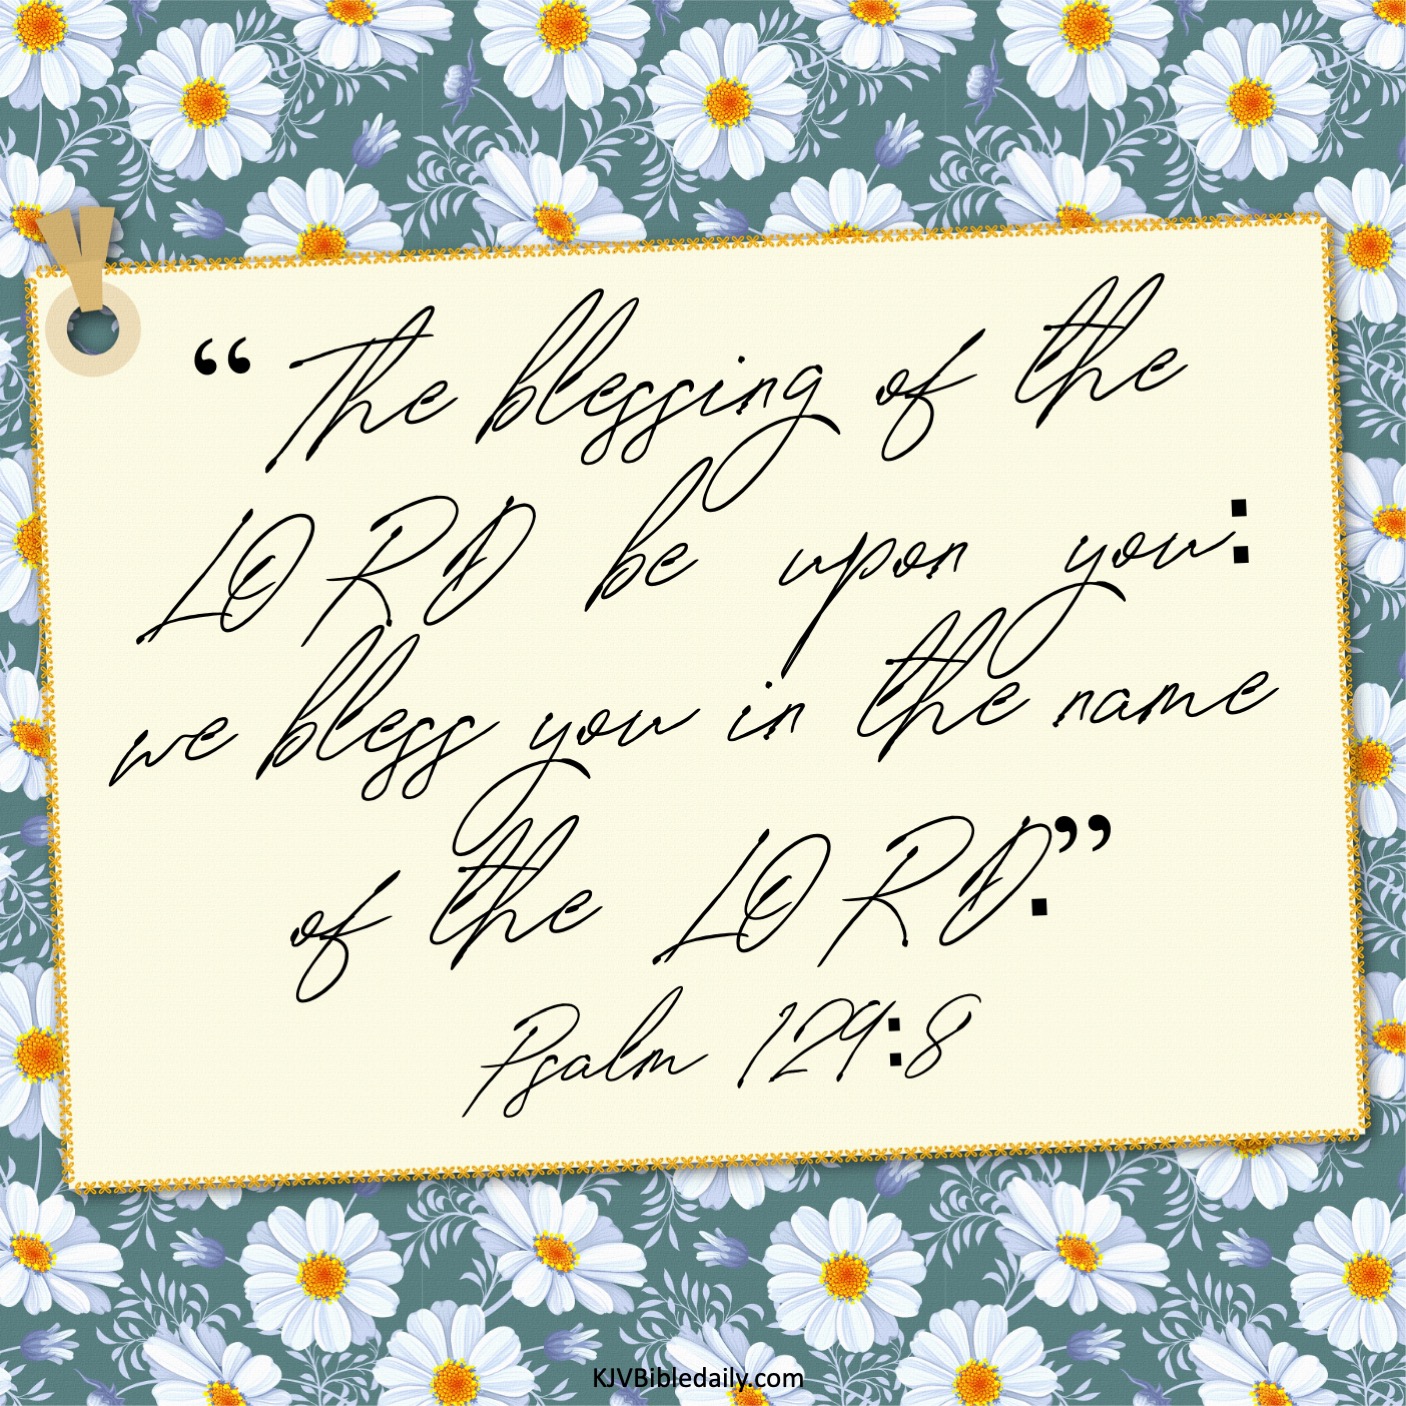 “The blessing of the
LORD be upon you:
we bless you in the name
of the LORD.”
Psalm 129:8
KJVBibledaily.com